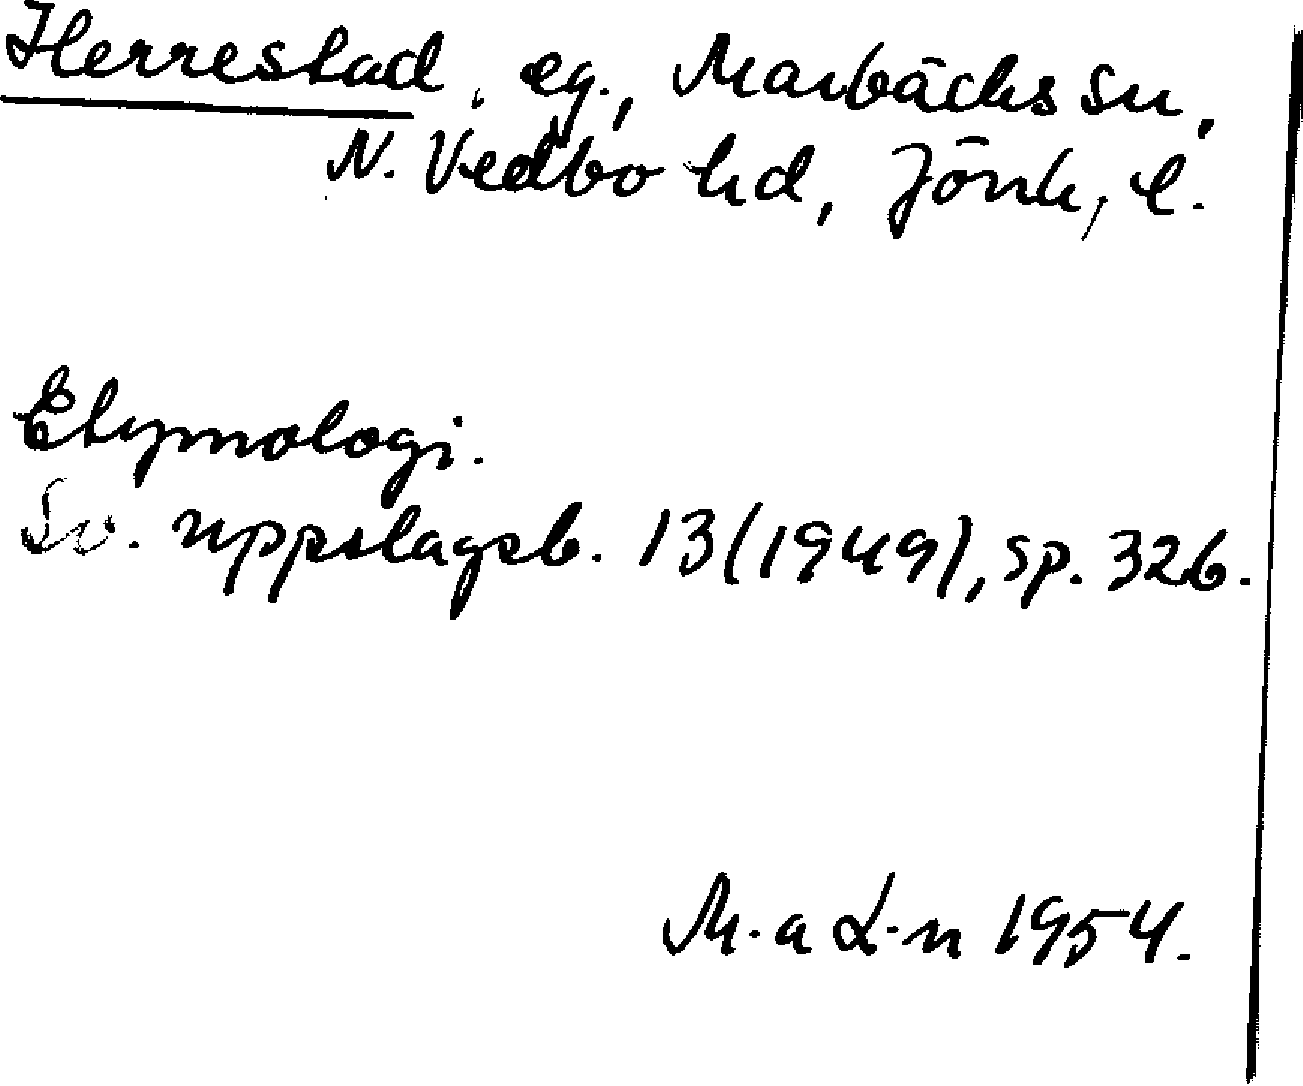 Herrestad, eg., Marbäcks sn,
N. Vedbo hd, Jönk, l.
Etymologi.
Sv. uppslagsb. 13(1949), sp. 326.
M-a L-n 1954.